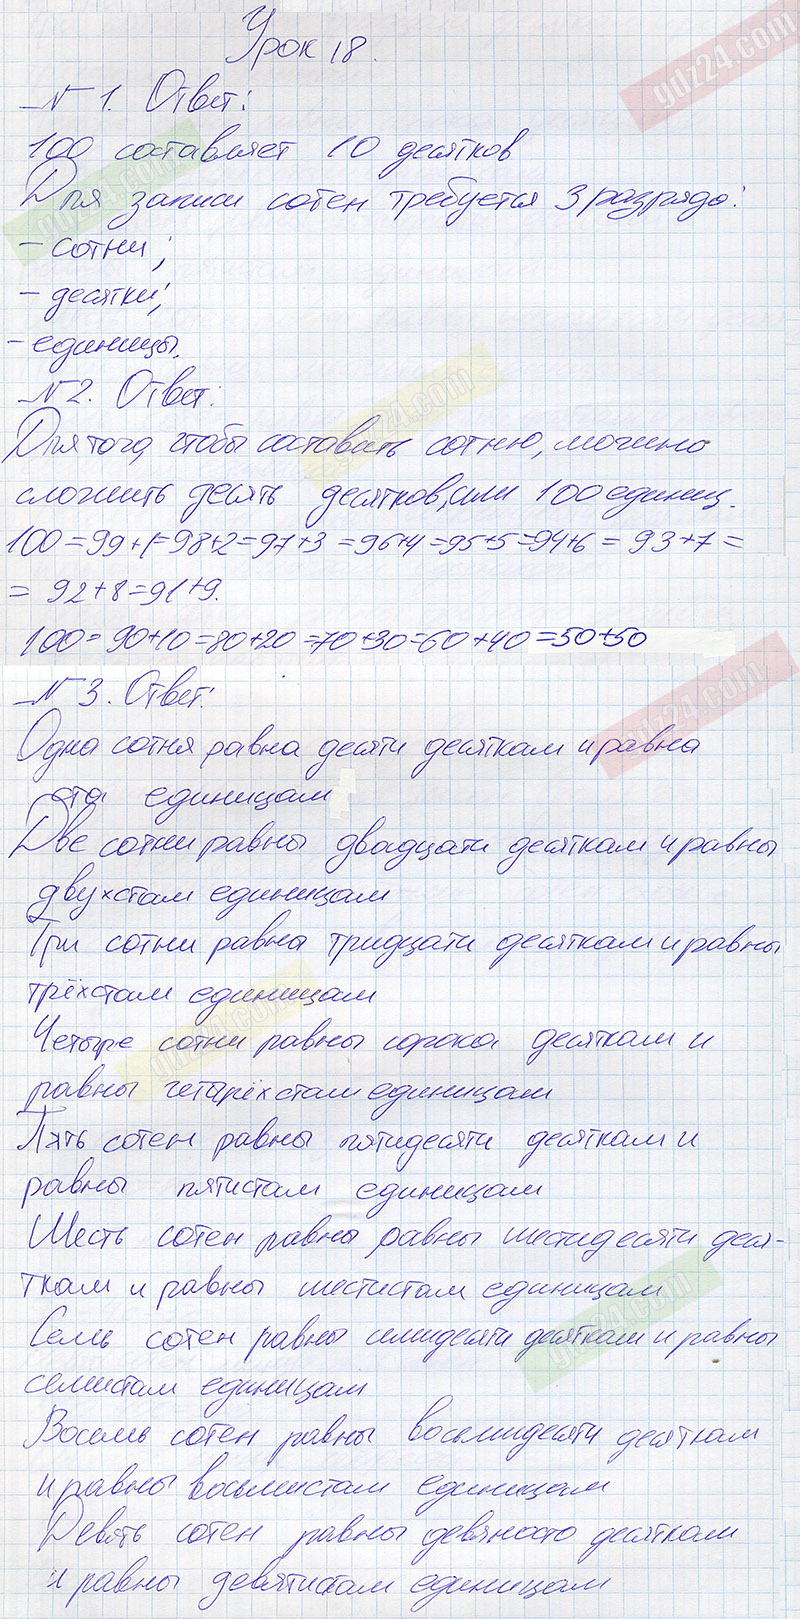 Урок 18.
№ 1. Ответ:
100 составляет 10 десятков
Для записи сотен требуется 3 разряда:
- сотни;
- десятки;
- единицы.
№ 2. Ответ:
Для того, чтобы составить сотню, можно
сложить десять десятков, или 100 единиц.
100 = 99 + 1 = 98 + 2 = 97 + 3 = 96 + 4 = 95 + 5 = 94 + 6 = 93 + 7 =
= 92 + 8 = 91 + 9.
100 = 90 + 10 = 80 + 20 = 70 + 30 = 60 + 40 = 50 + 50
№ 3. Ответ:
Одна сотня равна десяти десяткам и равна
ста единицам
Две сотни равны двадцати десяткам и равны
двухстам единицам
Три сотни равны тридцати десяткам и равны
трёхстам единицам
Четыре сотни равны сорока десяткам и
равны четырёхстам единицам
Пять сотен равны пятидесяти десяткам и
равны пятистам единицам
Шесть сотен равны равны шестидесяти деся-
ткам и равны шестистам единицам
Семь сотен равны семидесяти десяткам и равны
семистам единицам
Восемь сотен равны восьмидесяти десяткам
и равны восьмистам единицам
Девять сотен равны девяносто десяткам
и равны девятистам единицам
gdz24.com
gdz24.com
gdz24.com
gdz24.com
gdz24.com
gdz24.com